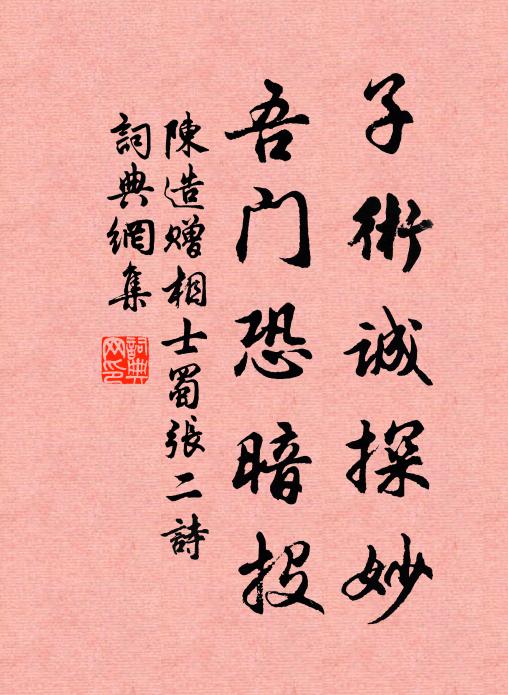 子術誠探妙
吾门恐暗投
陳造赠相士蜀張二詩
詞典網集
詞典网印